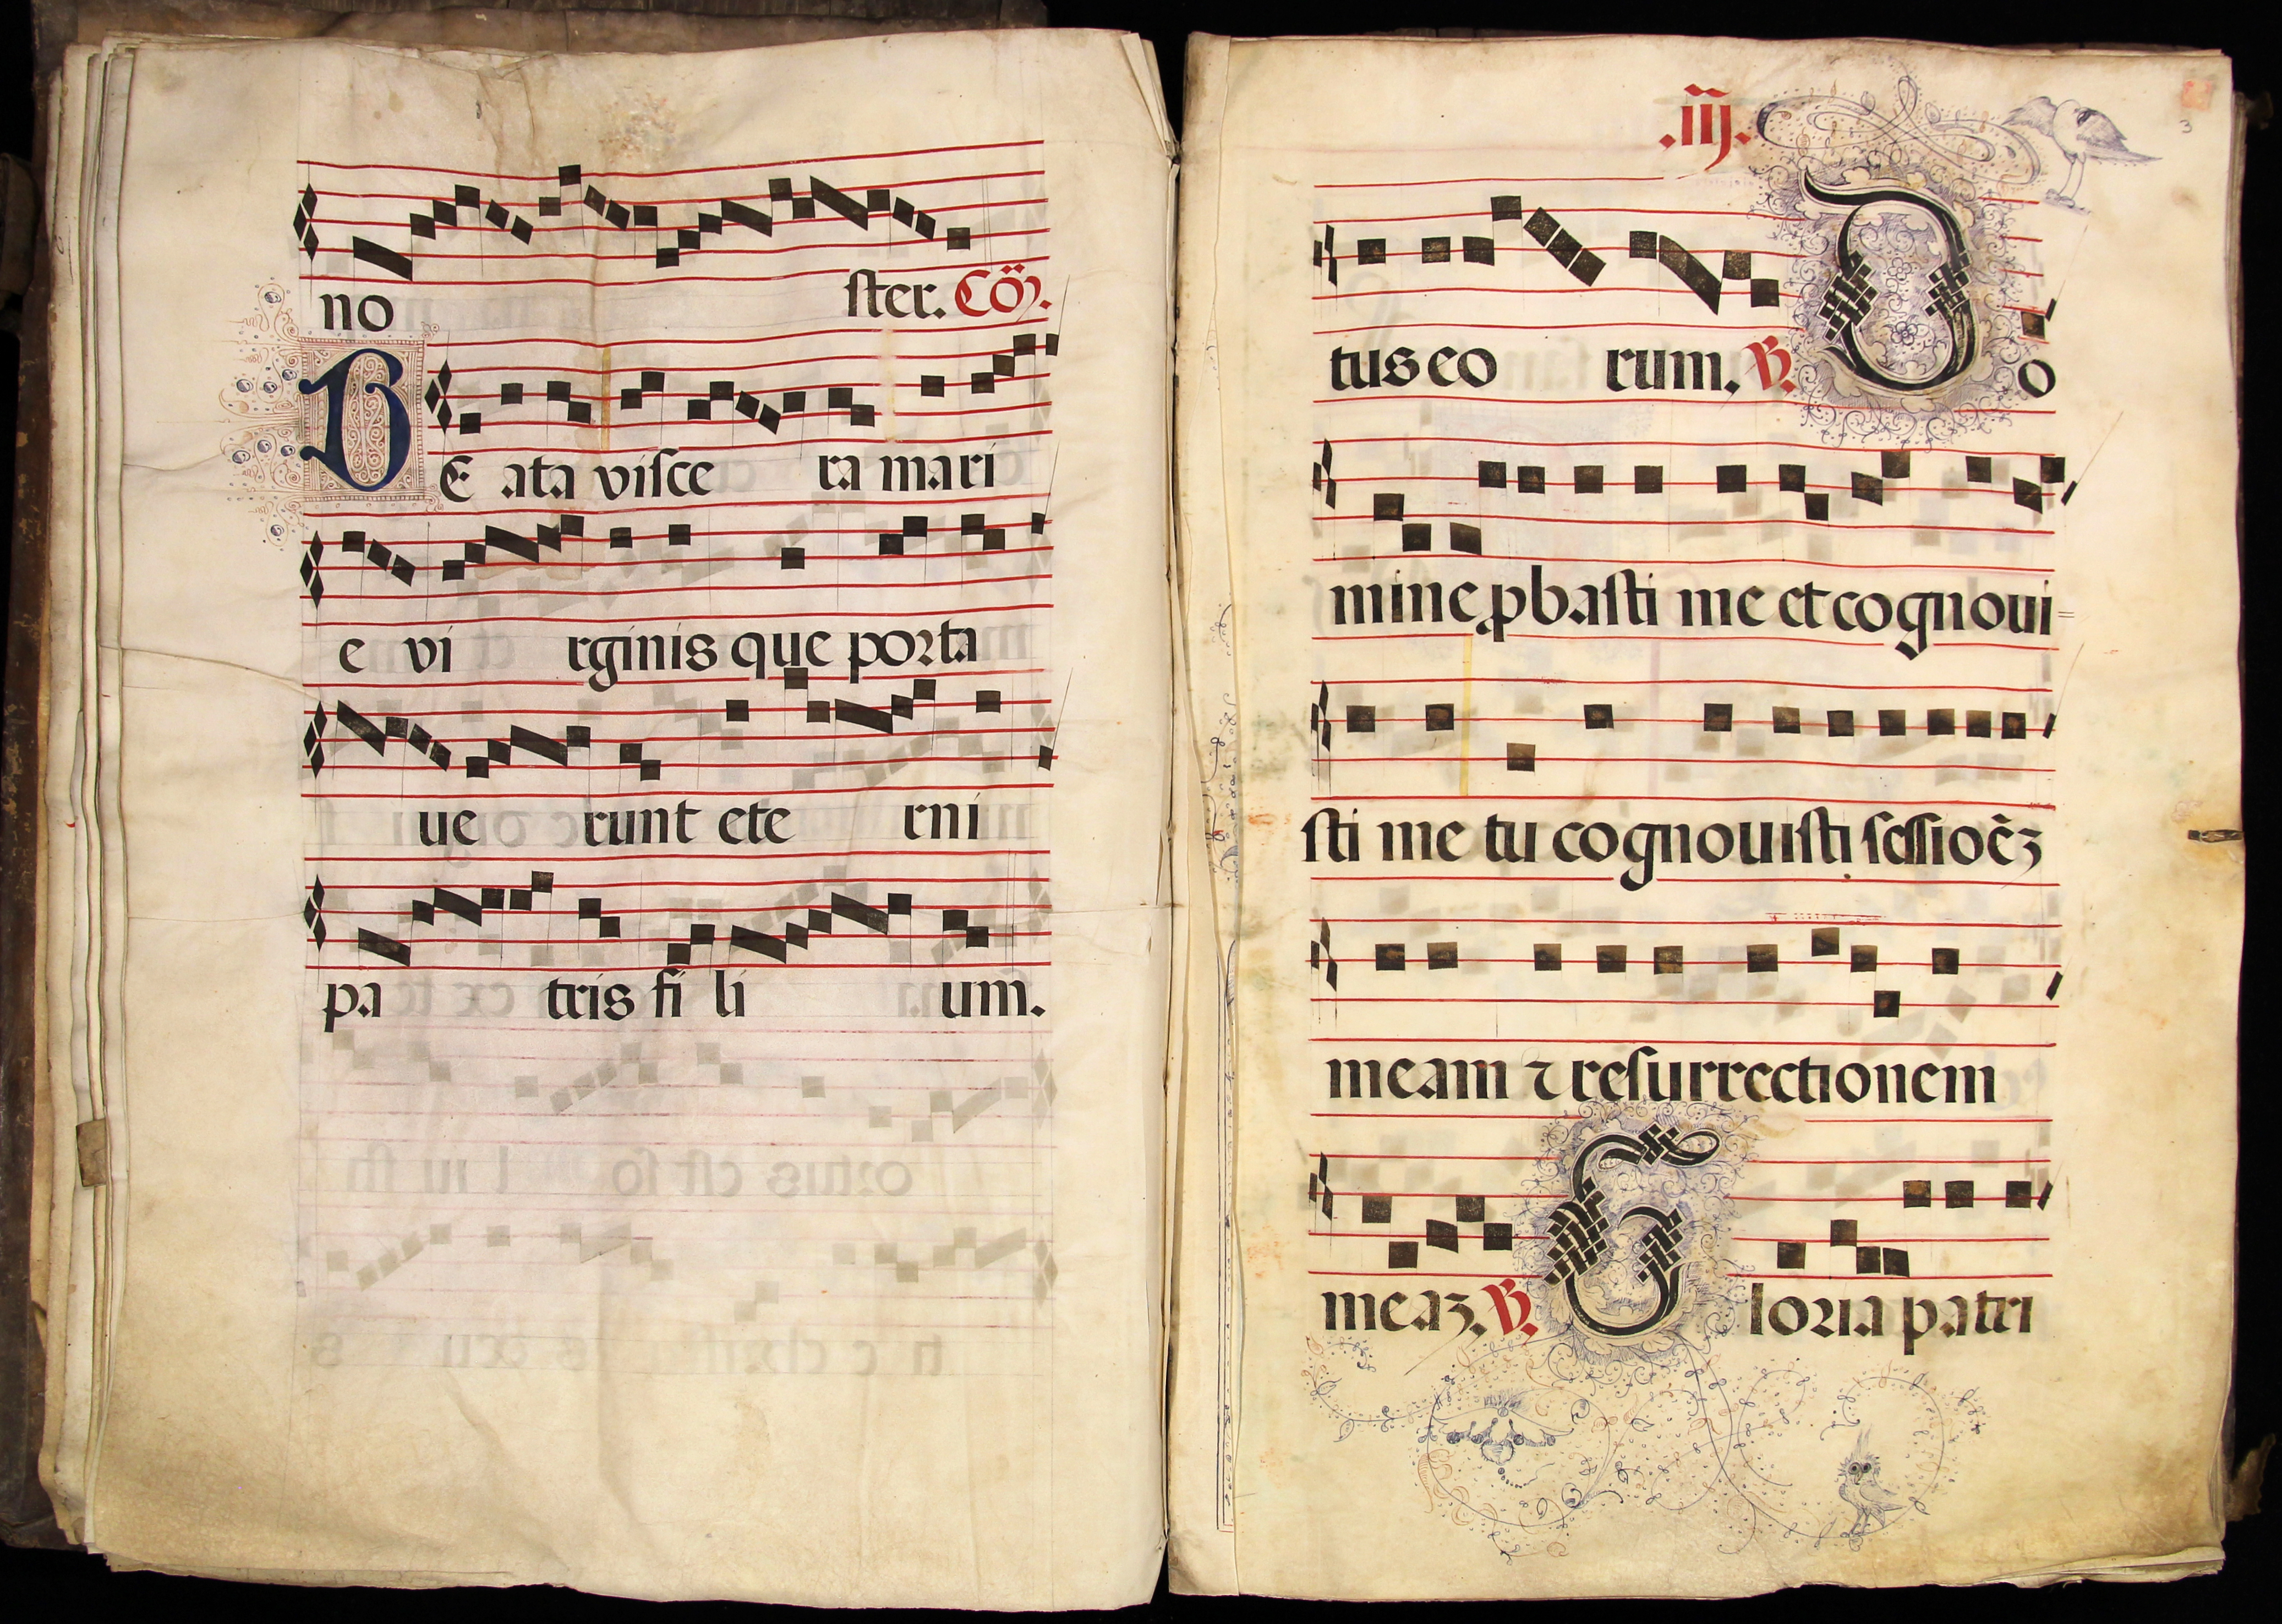 no ster. Cõ.
BE ata visce ra mari
e vi rginis que porta
ue runt ete rni
pa tris fi li um.
.iij.
3
tus eo rum. V. Do
mine ꝓbasti me et cognoui=
sti me tu cognouisti sessioēꝫ
meam ⁊ resurrectionem
meaꝫ. V. Gloria patri